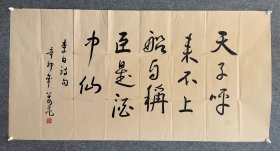 天子呼
来不上
船自称
臣是酒
中仙
李白诗句
辛卯年